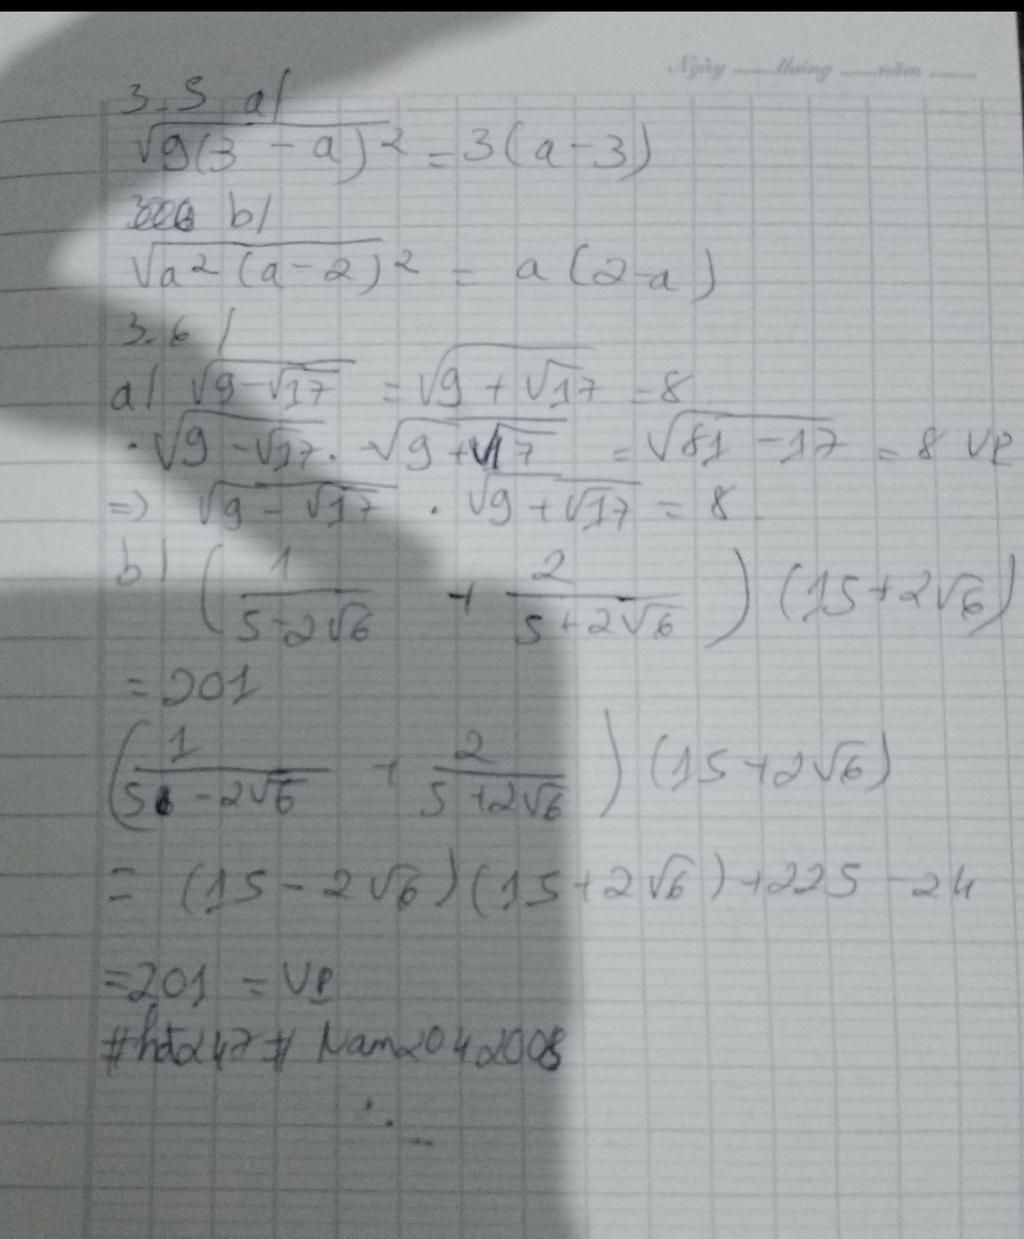 Ngày ......tháng ......năm ......
3.5 a/
√9(3 - a)² = 3(a-3)
b/
√a²(a-2)² = a(2-a)
3.6/
a/ √9-√17 = √9+√17 = 8
. √9-√17 . √9+√17 = √81-17 = 8 VP
=> √9-√17 . √9+√17 = 8
b/ (1/5-2√6 + 2/5+2√6)(15+2√6)
= 201
(1/5-2√6 + 2/5+2√6)(15+2√6)
= (15-2√6)(15+2√6)+225-24
= 201 = VP
#hđ247# Nam2042008